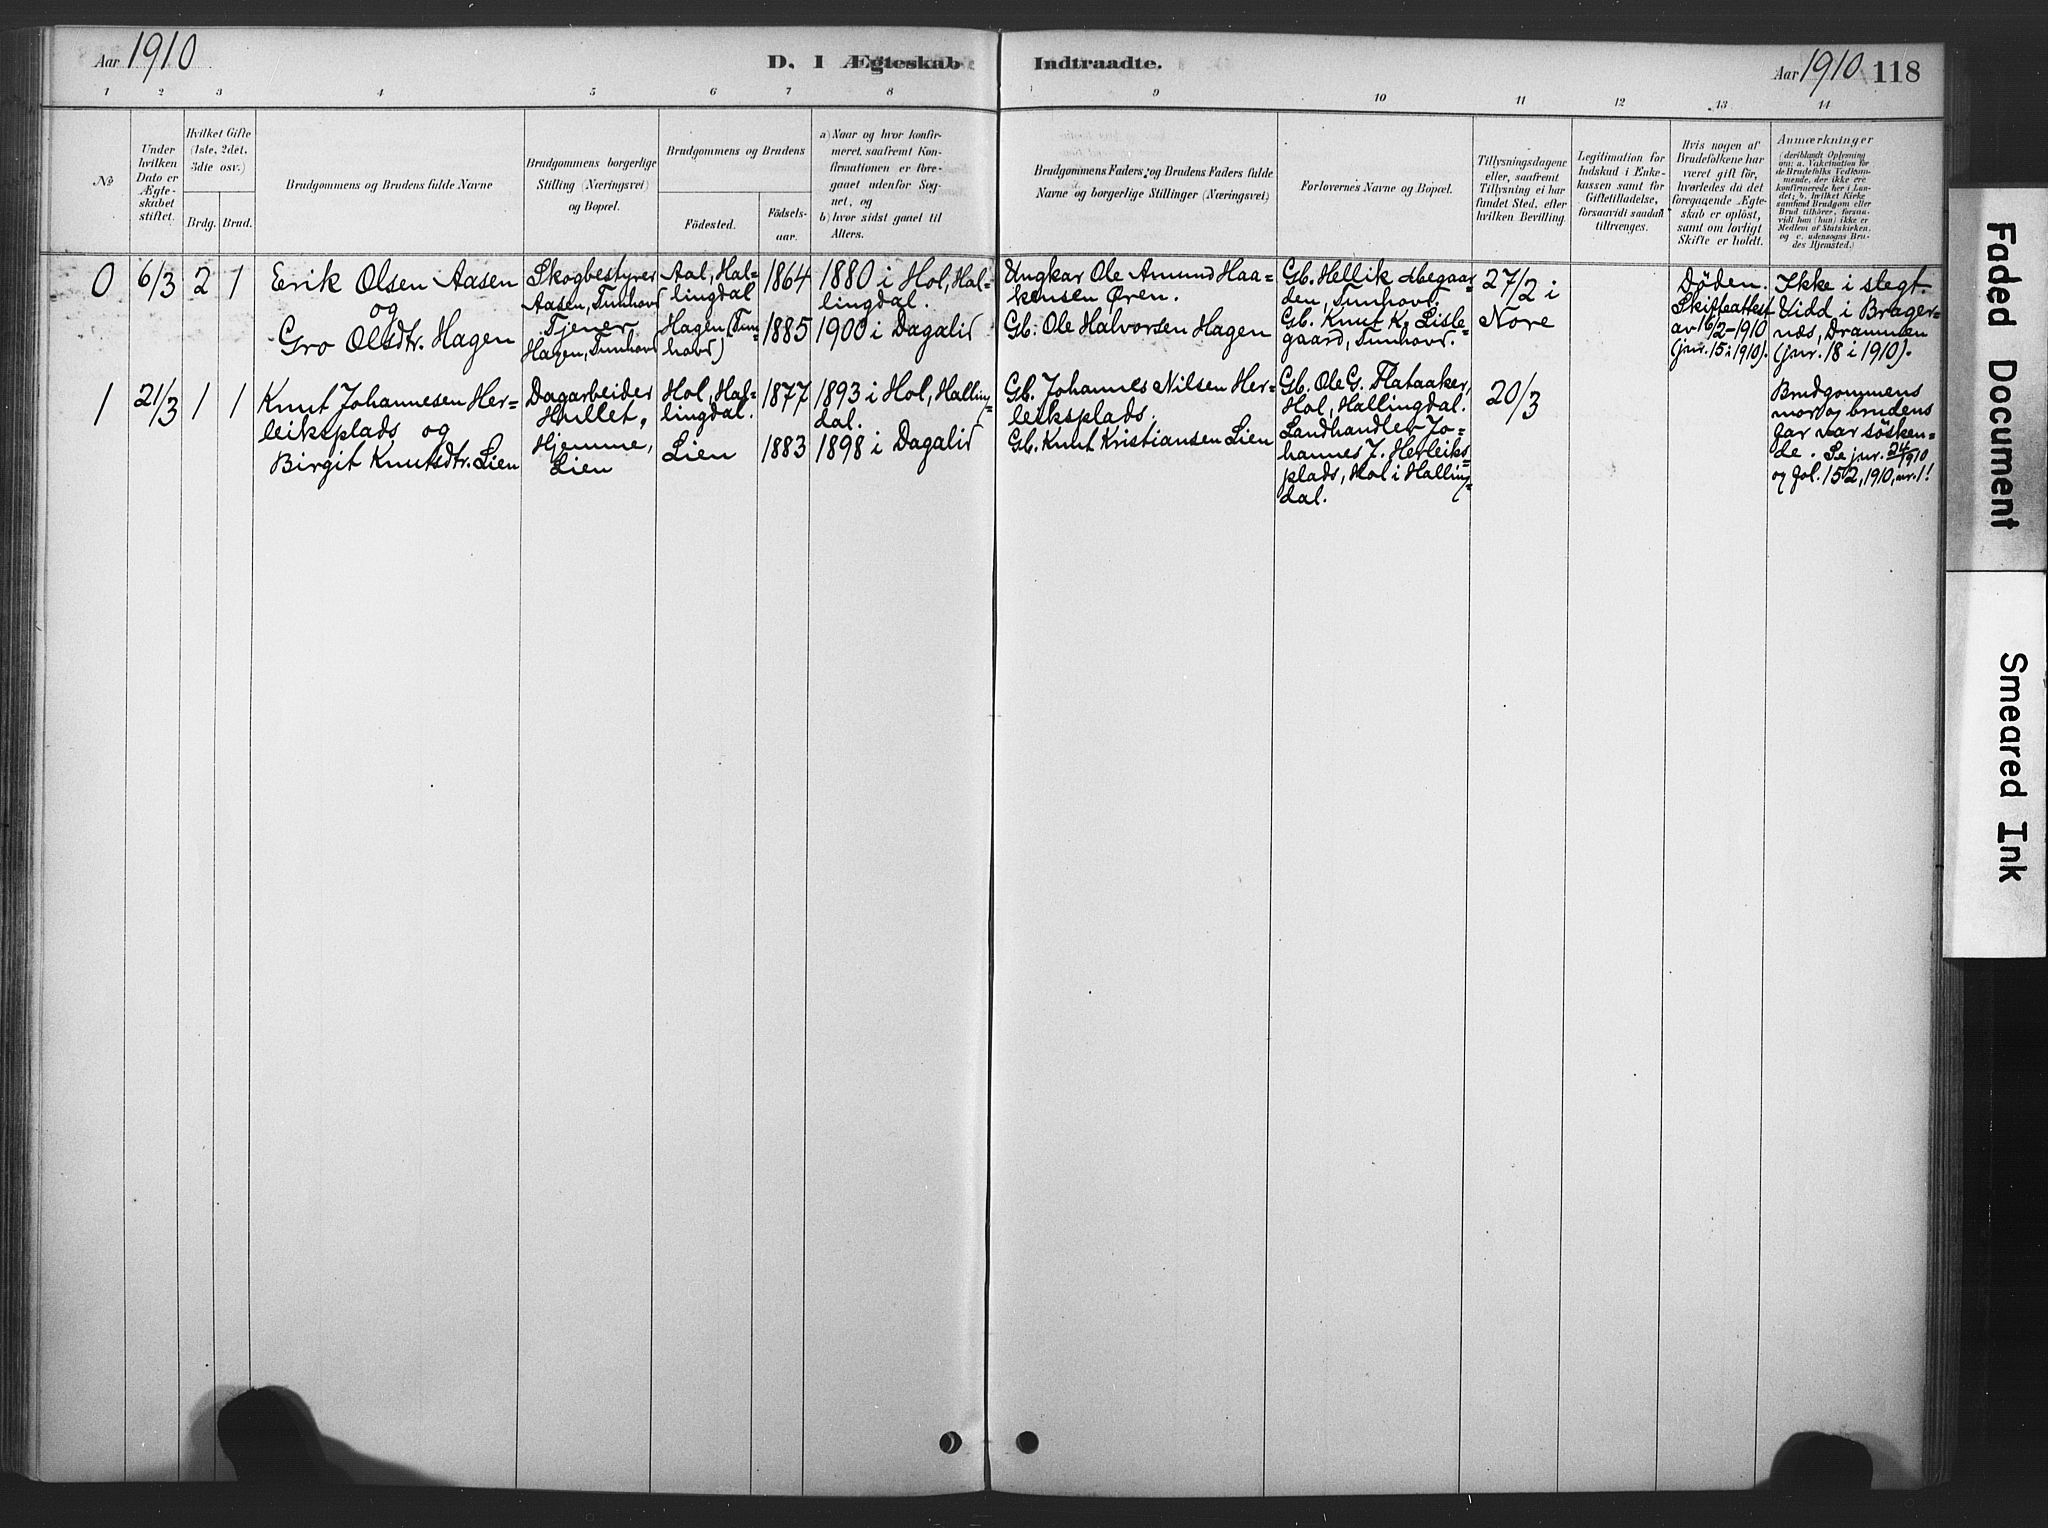 Aar 1910
D. I Ægteskab Indtraadte.
Aar 1910 118
1 2 3 4 5 6 7 8 9 10 11 12 13 14
№
Under
hvilken
Dato er
Ægte-
skabet
stiftet.
Hvilket Gifte
(1ste, 2det,
3die osv.)
Brdg. Brud.
Brudgommens og Brudens fulde Navne
Brudgommens borgerlige
Stilling (Næringsvei)
og Bopæl.
Brudgommens og Brudens
Födested.
Födsels-
aar.
a) Naar og hvor konfir-
meret, saafremt Kon-
firmationen er fore-
gaaet udenfor Sog-
net, og
b) hvor sidst gaaet til
Alters.
Brudgommens Faders og Brudens Faders fulde
Navne og borgerlige Stillinger (Næringsvei)
Forlovernes Navne og Bopæl.
Tillysningsdagene
eller, saafremt
Tillysning ei har
fundet Sted, efter
hvilken Bevilling.
Legitimation for
Indskud i Enke-
kassen samt for
Giftetilladelse,
forsaavidt saadan
tiltrænges.
Hvis nogen af
Brudefolkene har
været gift för,
hvorledes da det
foregaaende Ægte-
skab er oplöst,
samt om lovligt
Skifte er holdt.
Anmærkninger
(deriblandt Oplysning
om: a. Vakcination for
de Brudefolks Vedkom-
mende, der ikke ere
konfirmerede her i Lan-
det; b. hvilket Kirke-
samfund Brudgom eller
Brud tilhörer, forsaa-
vidt han (hun) ikke er
Medlem af Statskirken.
og c. udensogns Bru-
des Hjemsted.)
0
6/3
2
1
Erik Olsen Aasen
og
Gro Olsdtr. Hagen
Skogbestyrer
Aasen, Tunhovd
Tjener,
Hagen, Tunhovd
Aal, Hal-
lingdal
Hagen (Tun-
hovd)
1864
1885
1880 i Hol, Hal-
lingdal.
1900 i Dagalid
Ungkar Ole Amund Haa-
kensen Øren.
Gb. Ole Halvorsen Hagen
Gb. Hellik
den, Tunhovd.
Gb. Knut K. Lisle-
gaard, Tunhovd.
27/2 i
Nore
Døden.
Skifteattest
av 16/2-1910
(jnr. 15 i 1910).
Ikke i slegt.
Vidd i Brager-
næs, Drammen
(jnr. 18 i 1910).
1
21/3
1
1
Knut Johannesen Her-
leiksplads og
Birgit Knutsdtr. Lien
Dagarbeider
Hullet,
Hjemme,
Lien
Hol, Hal-
lingdal.
Lien
1877
1883
1893 i Hol, Halling-
dal.
1898 i Dagalid
Gb. Johannes Nilsen Her-
leiksplads.
Gb. Knut Kristiansen Lien
Gb. Ole G. Flataaker,
Hol, Hallingdal.
Landhandler Jo-
hannes J. Herleiks-
plads, Hol i Halling-
dal.
20/3
Brudgommens
mor og brudens
far var søsken-
de. Se jnr. 24/1910
og fol. 152, 1910, nr. 1!
Faded Document
Smeared Ink